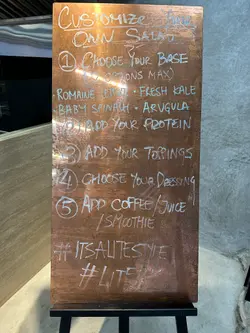 CUSTOMIZE YOUR
OWN SALAD
① CHOOSE YOUR BASE
OPTIONS MAX)
• ROMAINE • FRESH KALE
BABY SPINACH • ARUGULA
ADD YOUR PROTEIN
③ ADD YOUR TOPPINGS
④ CHOOSE YOUR DRESSING
⑤ ADD COFFEE/JUICE
/SMOOTHIE
#ITSALITESTYLE